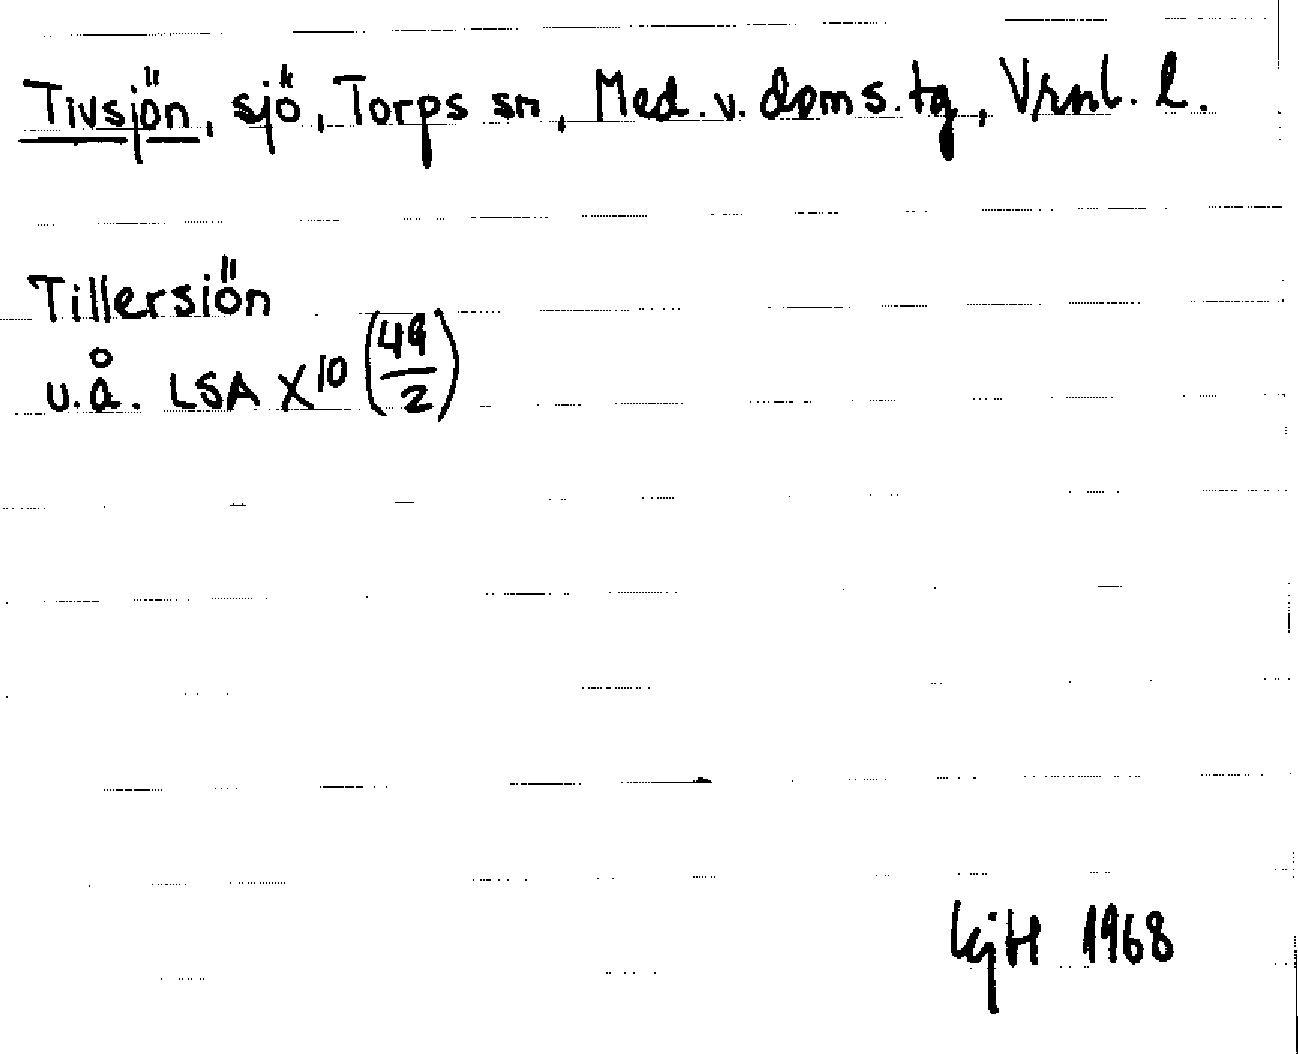 Tivsjön, sjö, Torps sn, Med. v. doms. tg, Vrnl. l.
Tillersiön
u.å. LSA X10 (49/2)
1968